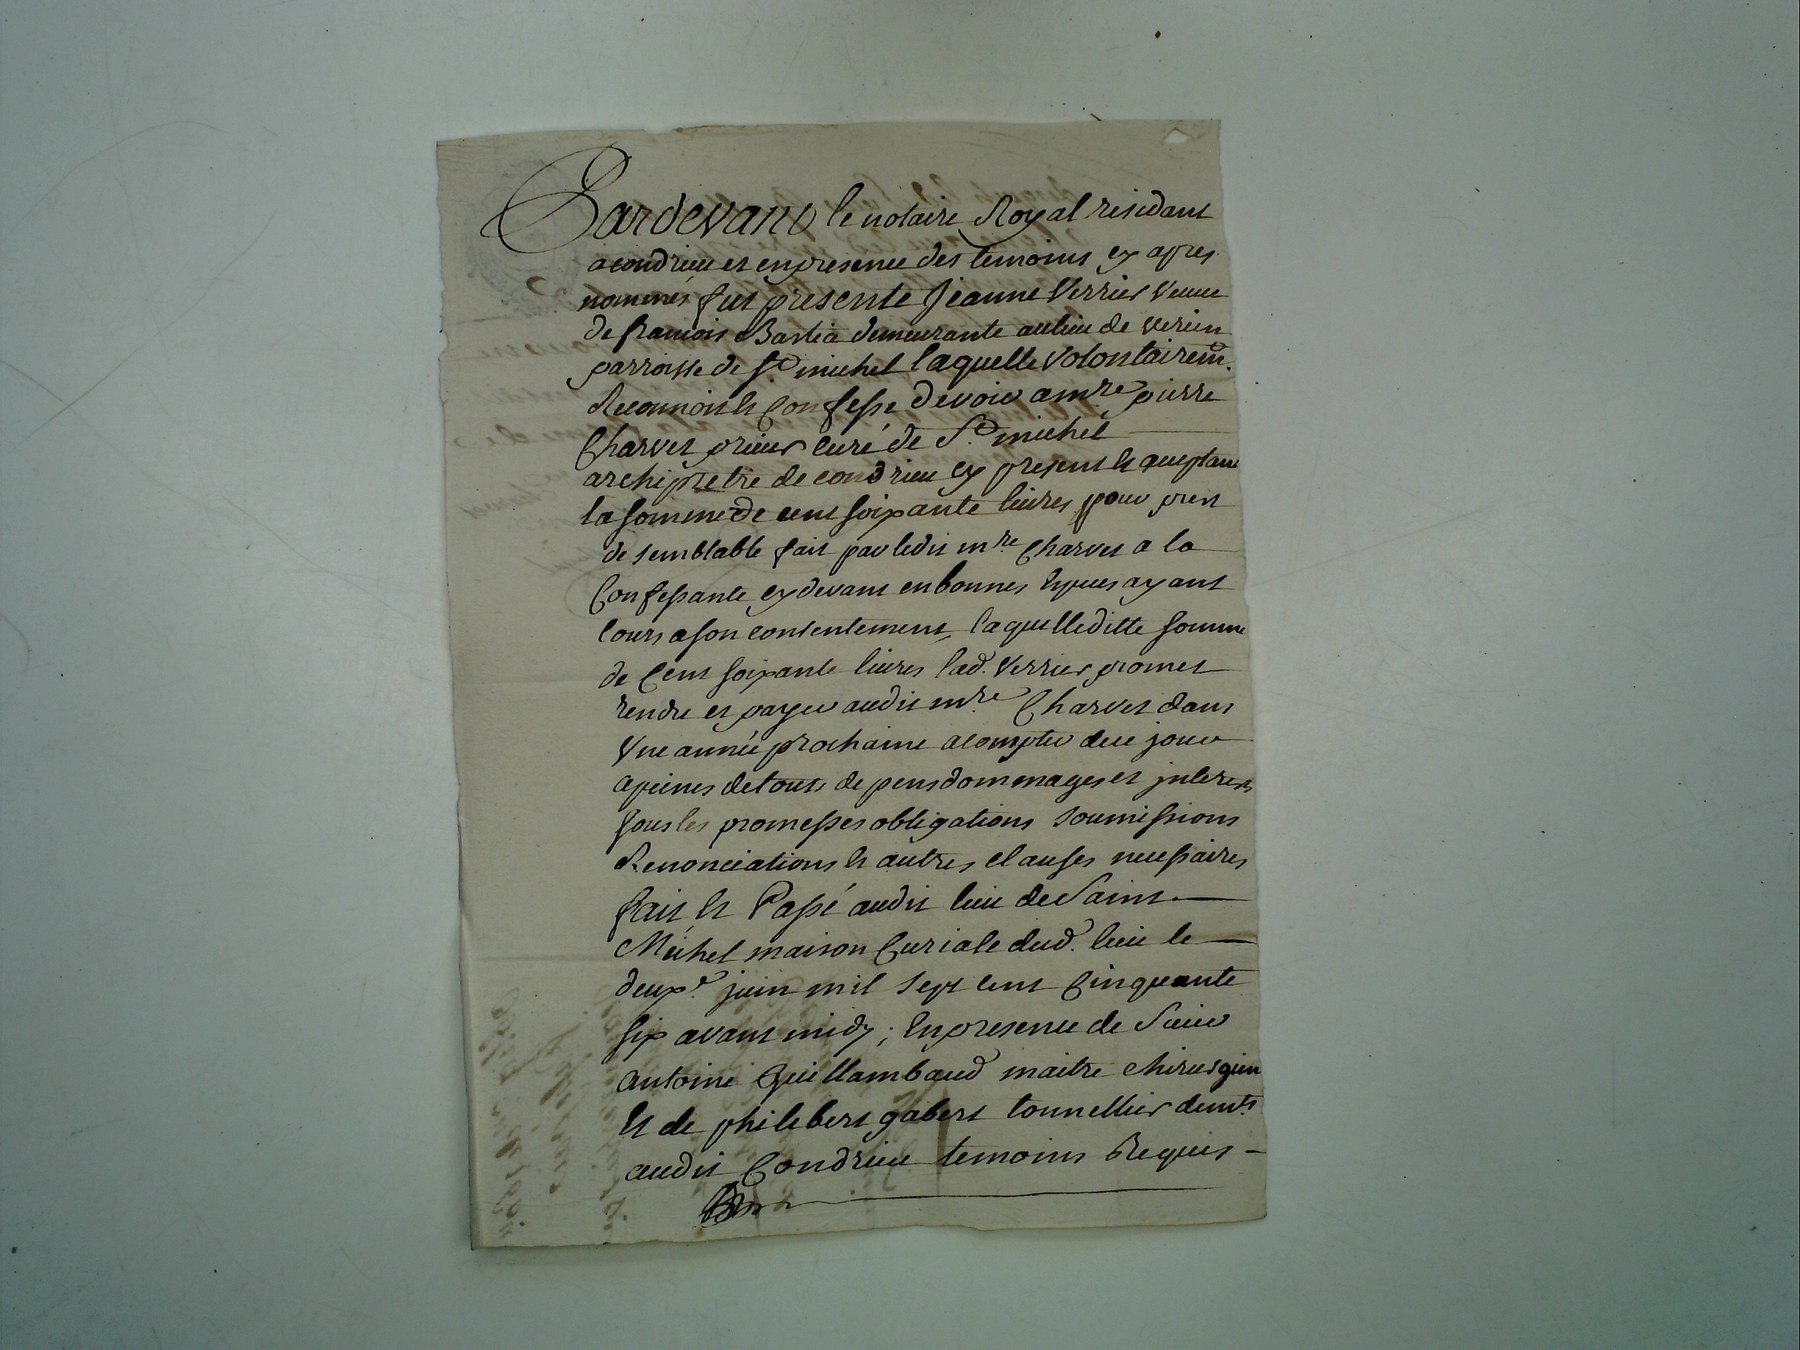 Pardevant le notaire Royal residant
a condrieu et en presence des temoins cy apres
nommés fut presente Jeanne Verrier veuve
de francois Bastia demeurante au lieu de verin
parroisse de St. michel laquelle volontairemt.
Reconnoit et Confesse devoir a mre pierre
Charvet prieur curé de St. michel
archipretre de condrieu cy present et acceptant
la somme de cent soixante livres pour pret
de semblable fait par ledit mre. Charvet a la
Confessante cy devant en bonnes especes ayant
cours a son contentement, laquelle ditte somme
de Cent soixante livres lad. Verrier promet
rendre et payer audit mre. Charvet dans
Une année prochaine a compter de ce jour
a peines de touts depens dommages et interests
sous les promesses obligations soumissions
Renonciations et autres clauses necessaires
fait et Passé audit lieu de Saint
Michel maison Curiale dud. lieu le
deuxe. juin mil sept cent Cinquante
six avant midy ; En presence de Sieur
antoine Guillambaud maitre chirurgien
Et de philebert gabert tonnellier demts.
audit Condrieu temoins Requis